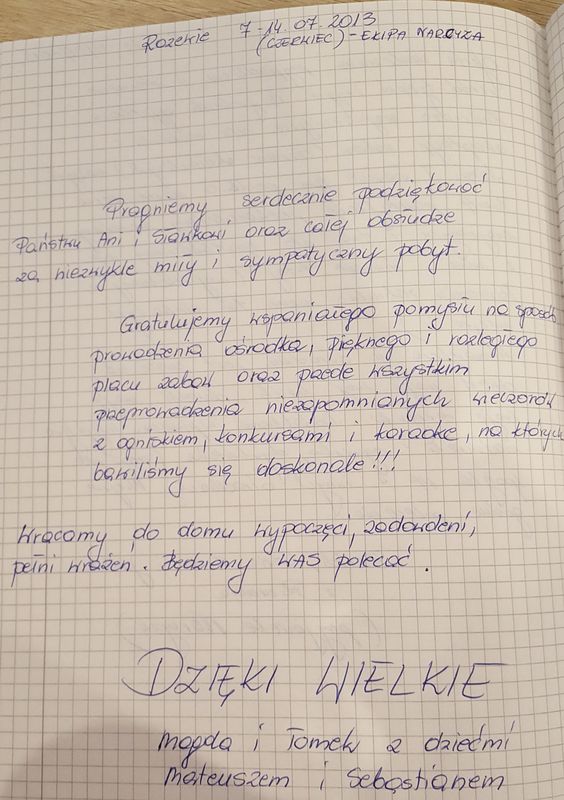 Rozenie 7-14.07.2013
(CZERNIEC) - EKIPA NARCYZA
Pragniemy serdecznie podziękować
Państwu Ani i Stankowi oraz całej obsłudze
za niezwykle miły i sympatyczny pobyt.
Gratulujemy wspaniałego pomysłu na sposób
prowadzenia ośrodka, pięknego i rozległego
placu zabaw oraz przede wszystkim
przeprowadzenia niezapomnianych wieczorów
z ogniskiem, konkursami i karaoke, na których
bawiliśmy się doskonale!!!
Wracamy do domu wypoczęci, zadowoleni,
pełni wrażeń. Będziemy WAS polecać.
DZIĘKI WIELKIE
Magda i Tomek z dziećmi
Mateuszem i Sebastianem